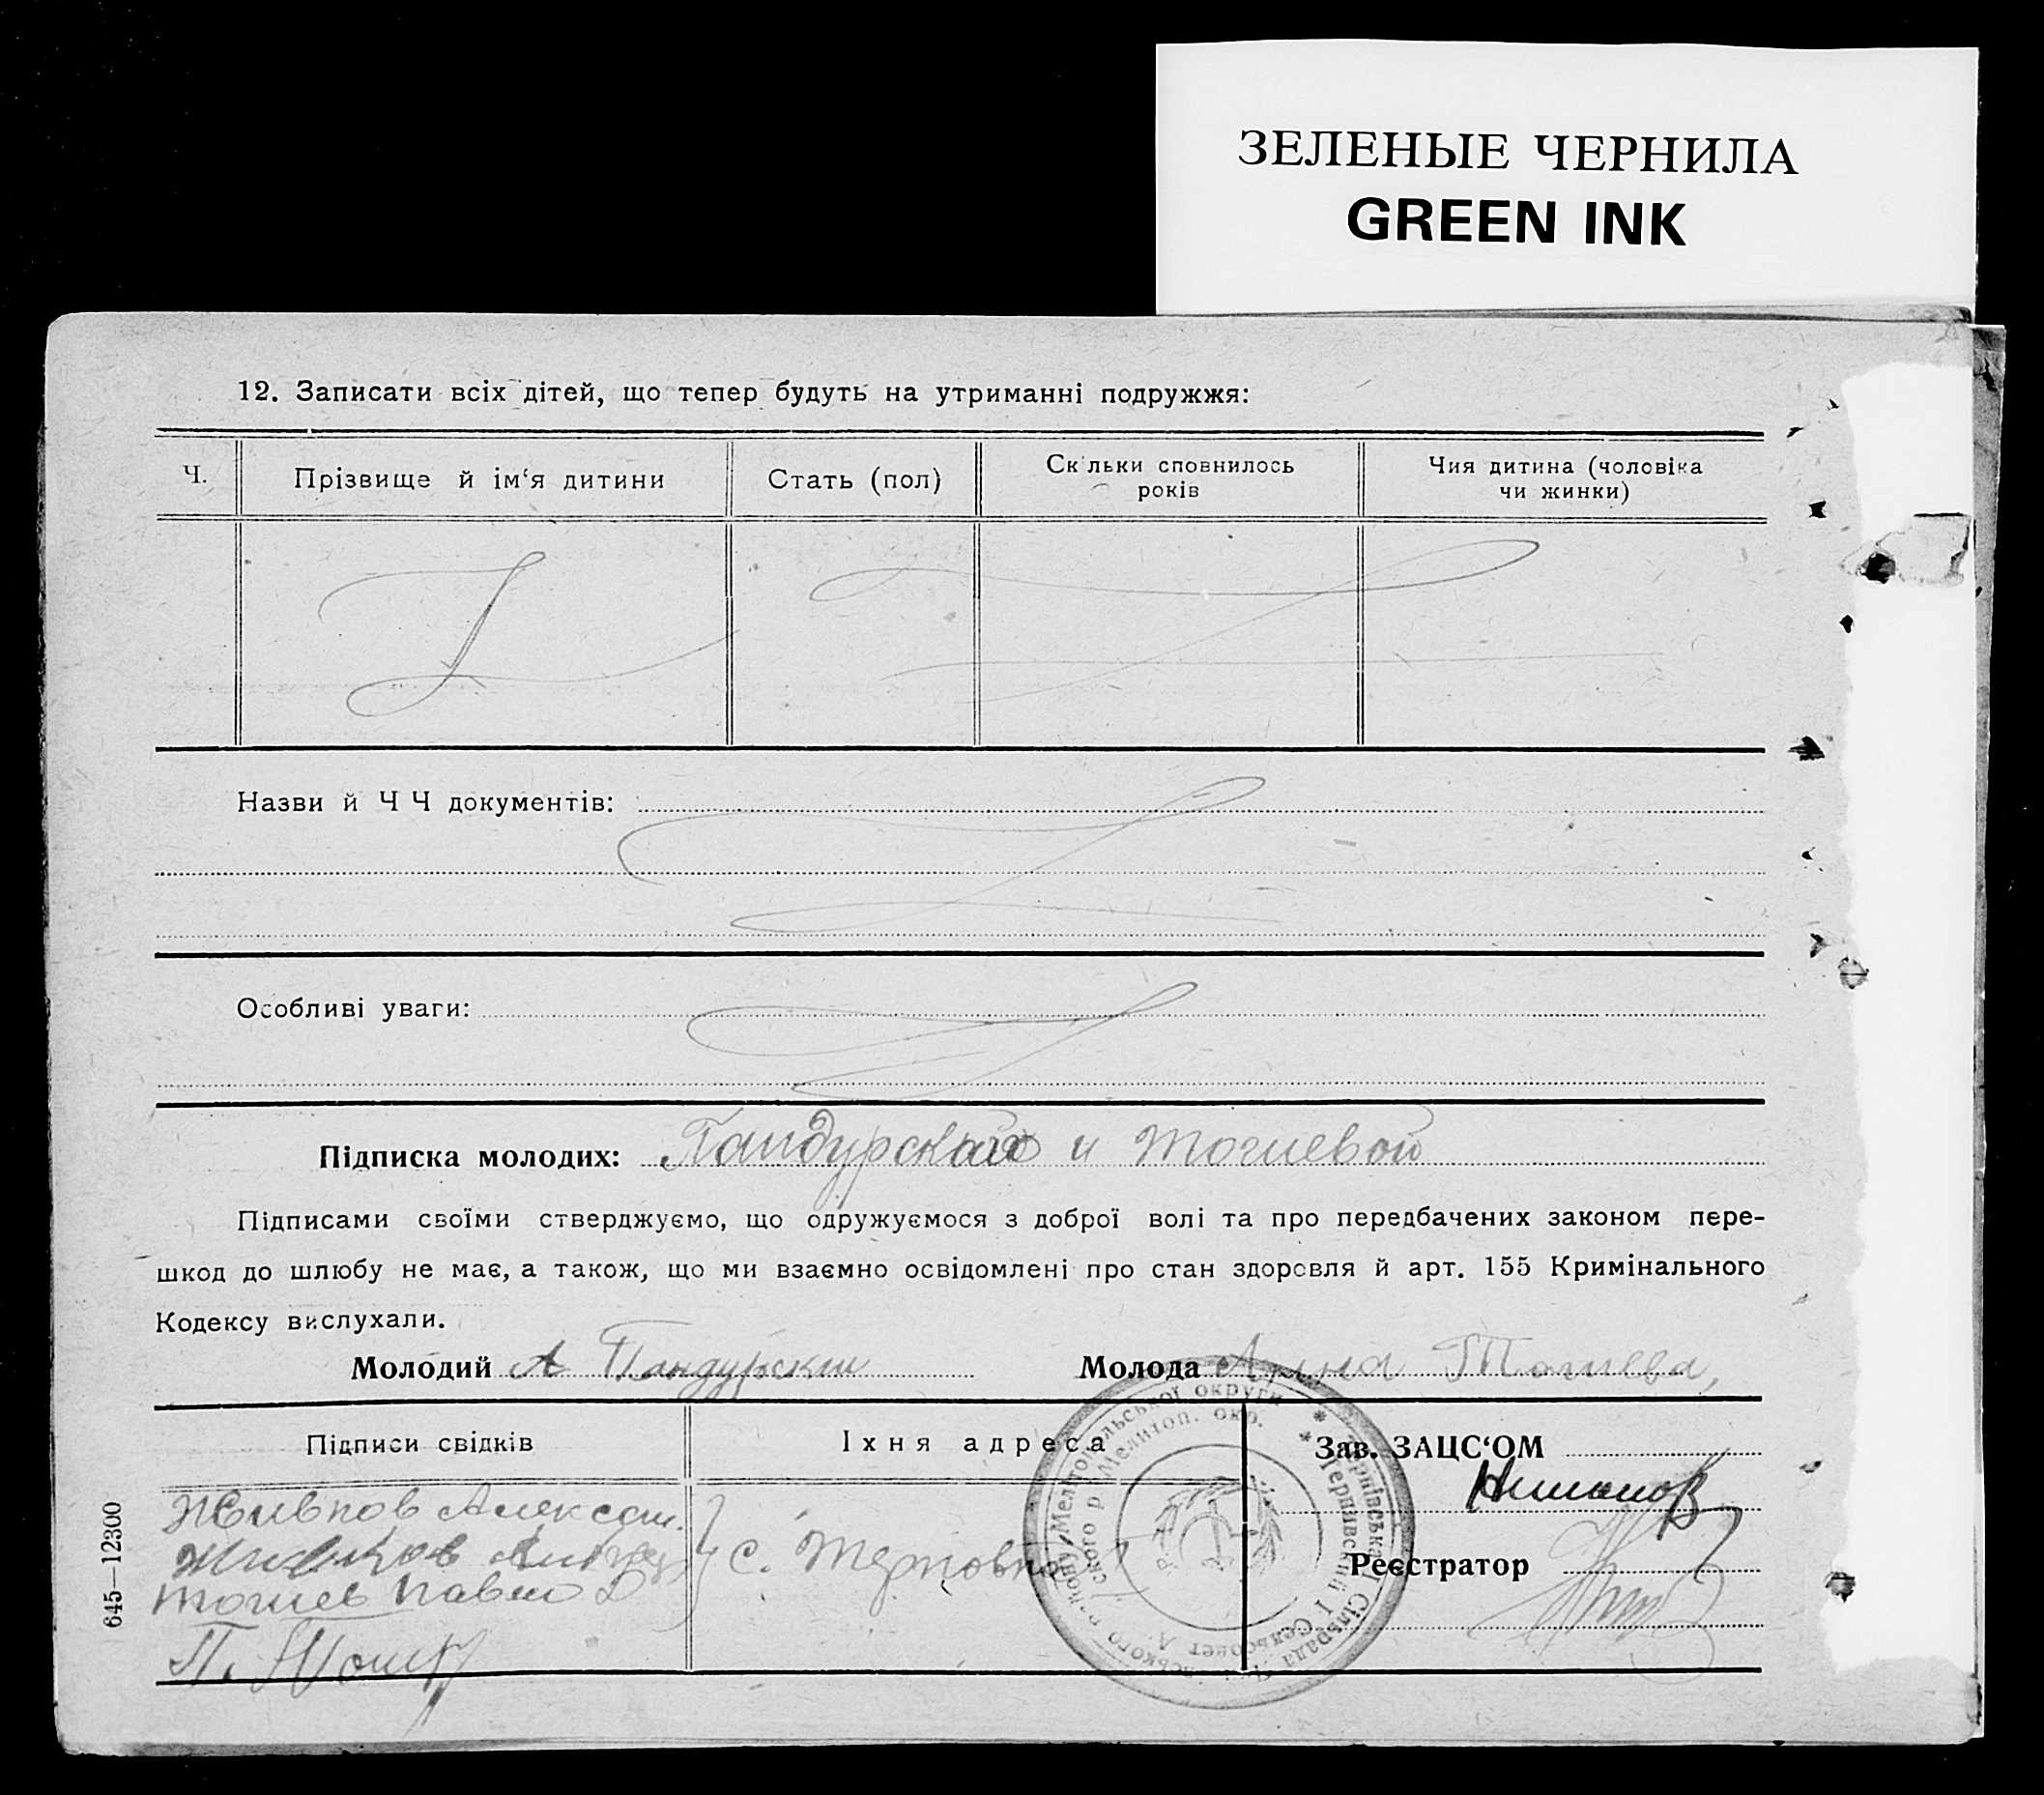 ЗЕЛЕНЫЕ ЧЕРНИЛА
GREEN INK
12. Записати всіх дітей, що тепер будуть на утриманні подружжя:
Ч.
Прізвище й ім‘я дитини
Стать (пол)
Скільки сповнилось
років
Чия дитина (чоловіка
чи жинки)
Назви й Ч Ч документів:
Особливі уваги:
Підписка молодих: и Тошевой
Підписами своїми стверджуємо, що одружуємося з доброї волі та про передбачених законом пере-
шкод до шлюбу не має, а також, що ми взаємно освідомлені про стан здоровля й арт. 155 Кримінального
Кодексу вислухали.
Молодий А Пандурский
Молода Анна Тошева,
Підписи свідків
Їхня адреса
Зав. ЗАЦС‘ОМ
Реєстратор
Тошев Павел
с. Терновка
645—12300